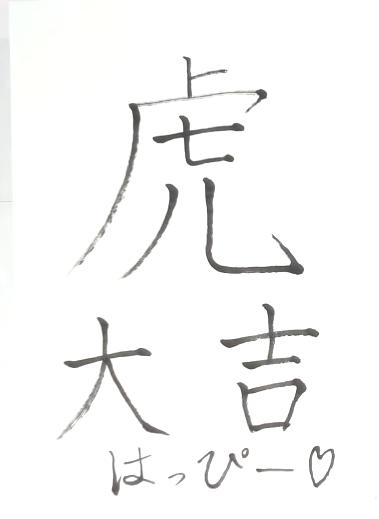 虎
大吉
はっぴー♡